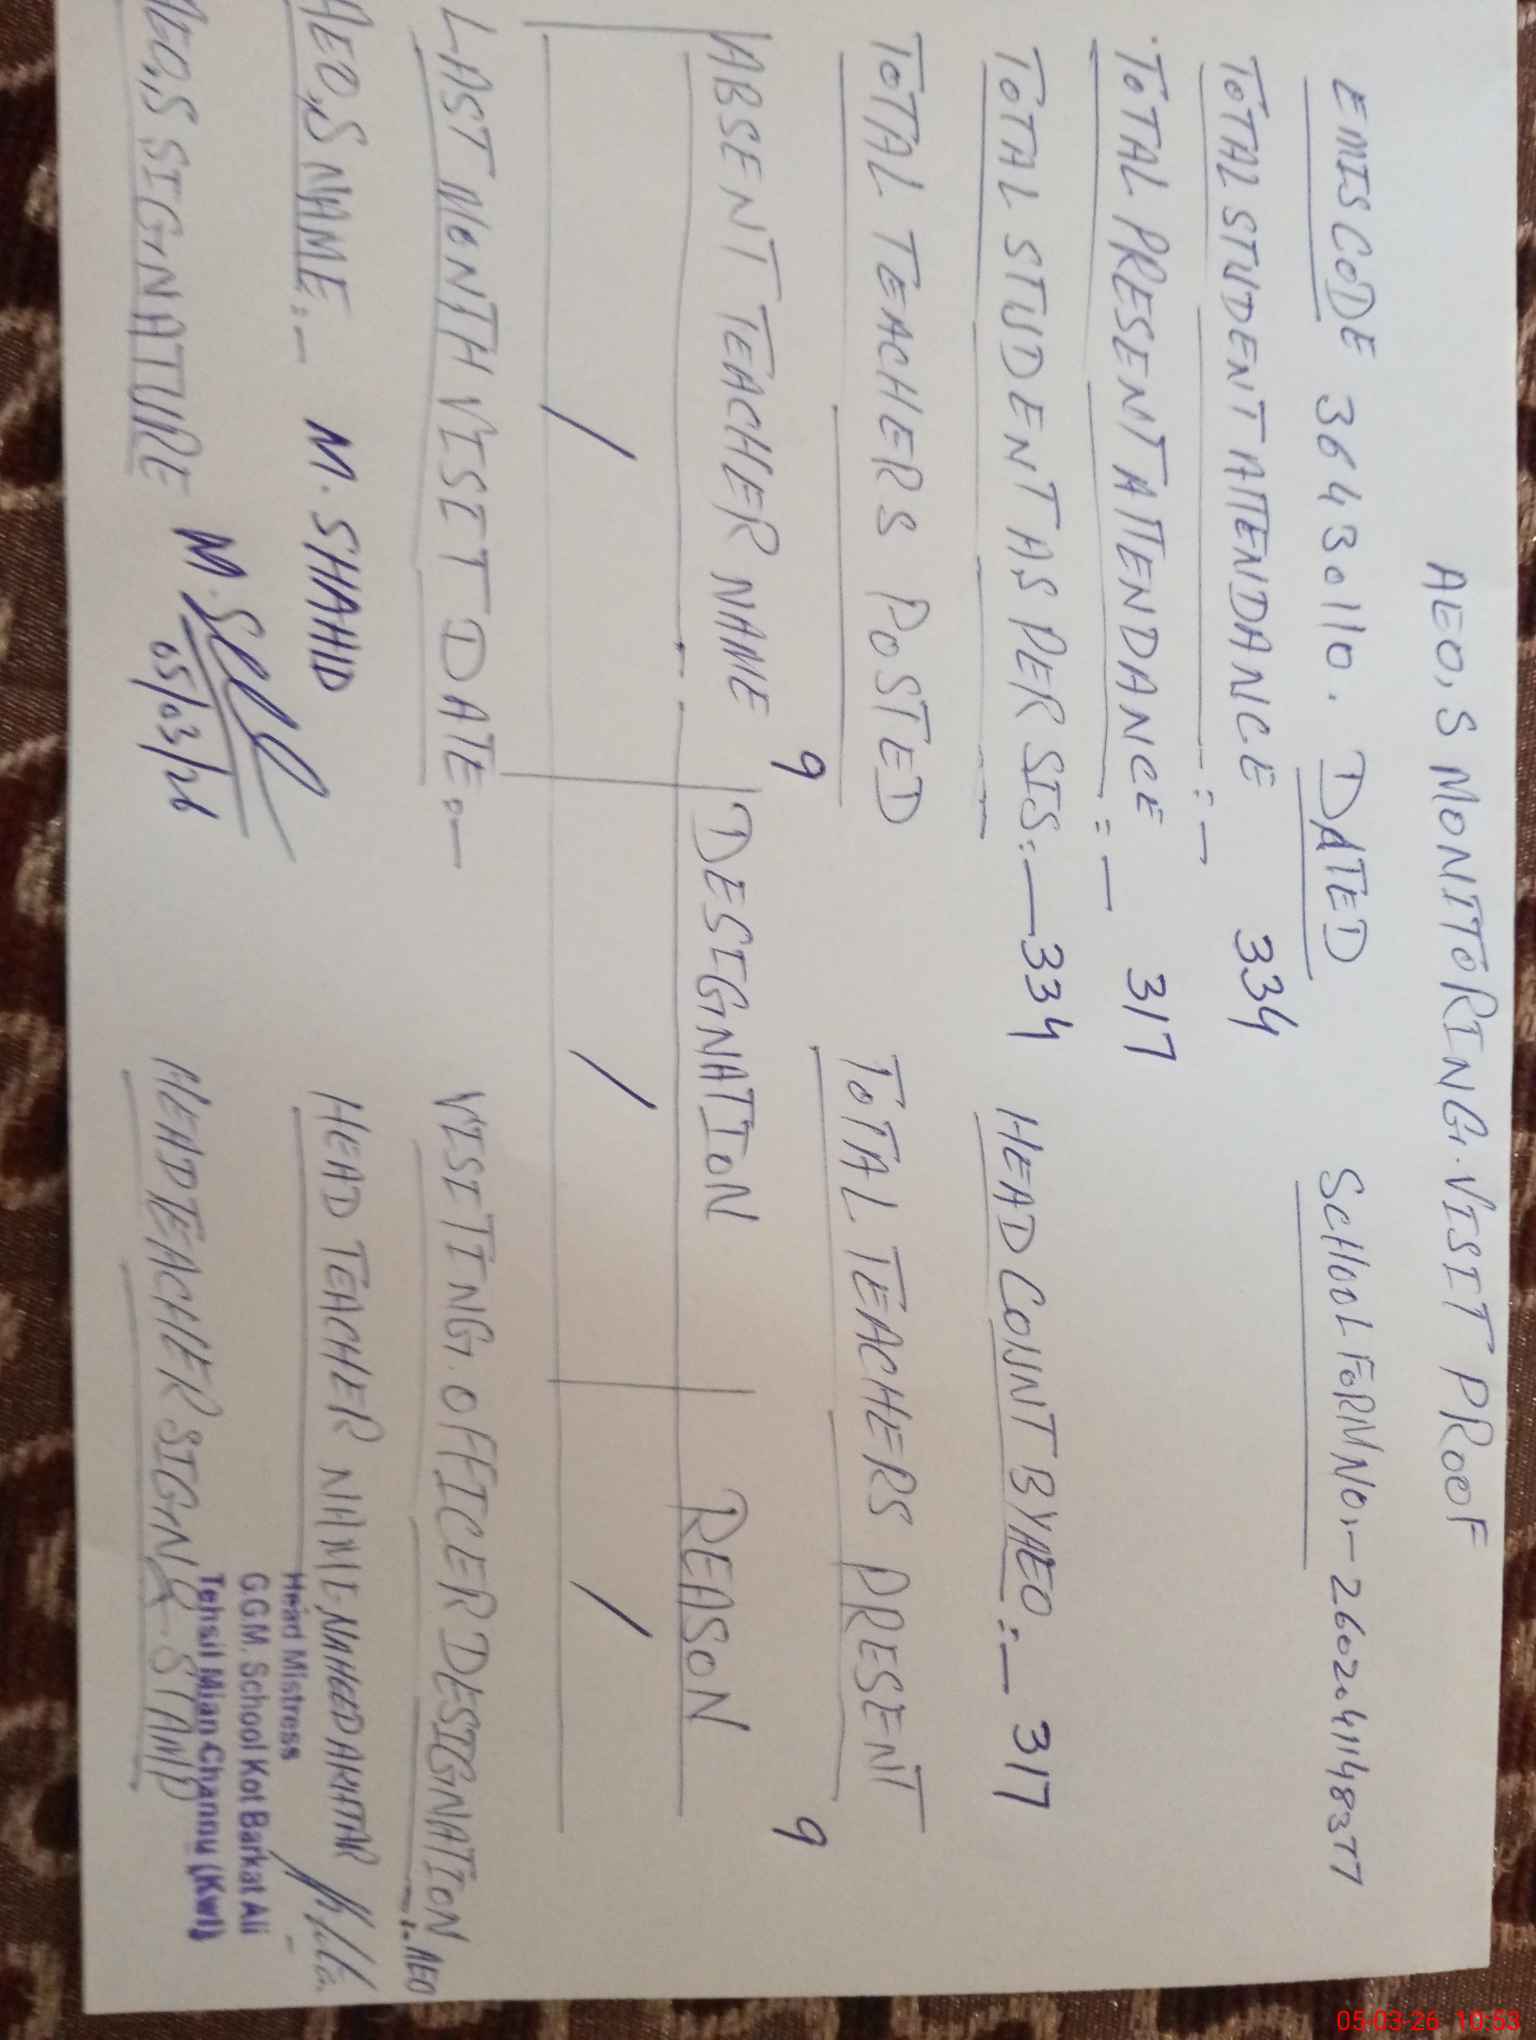 AEO,S MONITORING. VISIT PROOF
EMISCODE 36430110. DATED SCHOOL FORM NO:- 2602041148377
TOTAL STUDENT ATTENDANCE :- 334
TOTAL PRESENT ATTENDANCE :- 317
TOTAL STUDENT AS PER SIS:- 334 HEAD COUNT BY AEO:- 317
TOTAL TEACHERS POSTED TOTAL TEACHERS PRESENT
9 9
ABSENT TEACHER NAME DESIGNATION REASON
/ / /
LAST MONTH VISIT DATE:- VISITING. OFFICER DESIGNATION:. AEO
AEO,S NAME:- M. SHAHID HEAD TEACHER NAME, NAHEED AKHTAR
Head Mistress
G.G.M. School Kot Barkat Ali
Tehsil Mian Channu (Kwl)
AEO,S SIGNATURE M. HEADTEACHER SIGN & STAMP
05/03/26
05-03-26 10:53